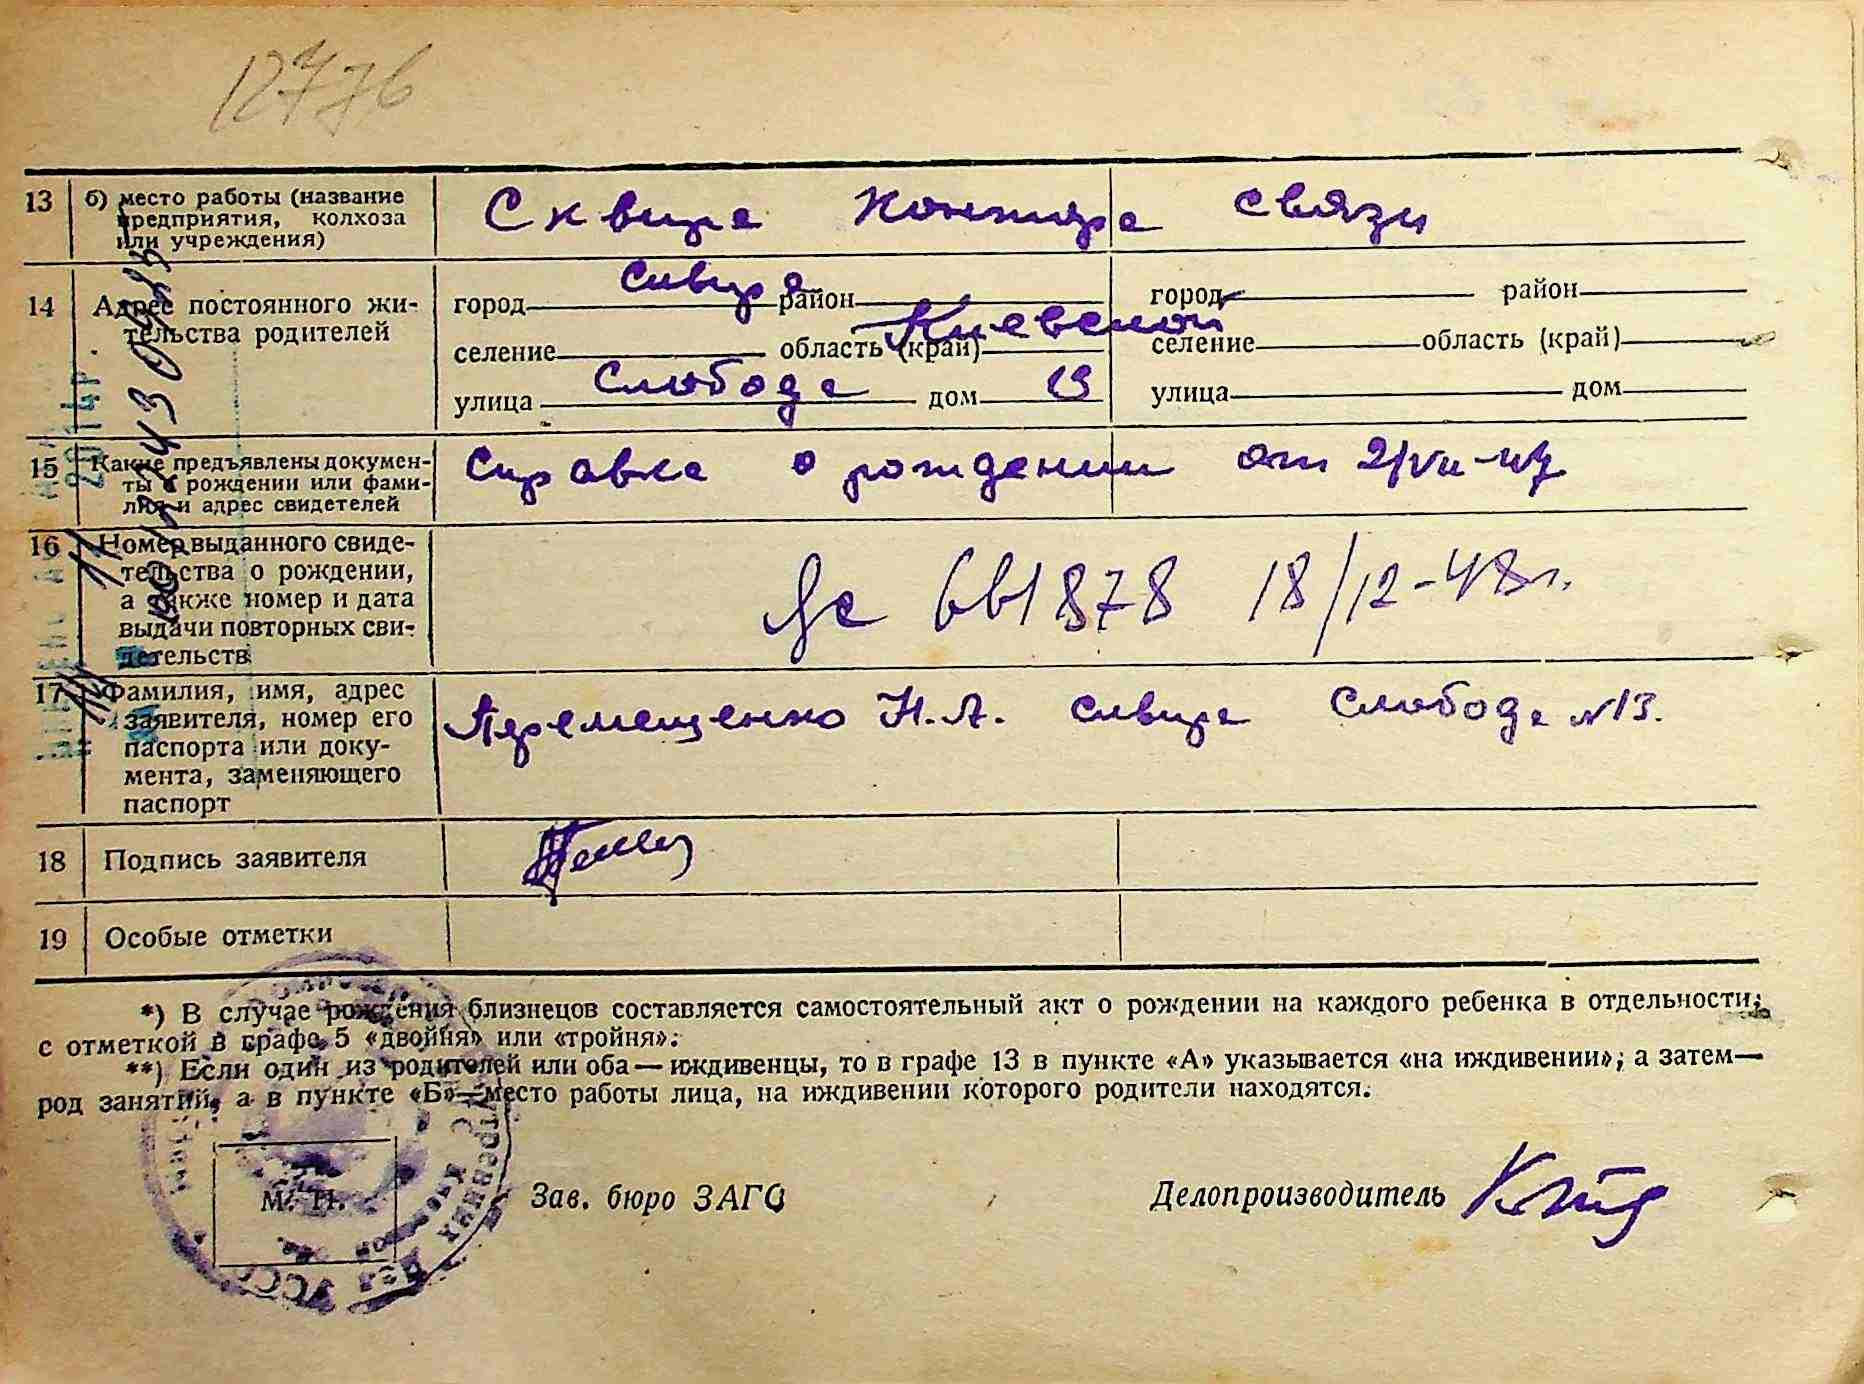 12776
13 б) место работы (название предприятия, колхоза или учреждения) Сквира Контора связи
14 Адрес постоянного жительства родителей
город Сквира район город район
селение область (край) Киевской селение область (край)
улица Слобода дом 13 улица дом
15 Какие предъявлены документы о рождении или фамилия и адрес свидетелей Справка о рождении от 2/VII-47
16 Номер выданного свидетельства о рождении, а также номер и дата выдачи повторных свидетельств 661878 18/12-48г.
17 Фамилия, имя, адрес заявителя, номер его паспорта или документа, заменяющего паспорт Яремещенко Н.А. Сквира Слобода №13.
18 Подпись заявителя
19 Особые отметки
*) В случае рождения близнецов составляется самостоятельный акт о рождении на каждого ребенка в отдельности,
с отметкой в графе 5 «двойня» или «тройня».
**) Если один из родителей или оба — иждивенцы, то в графе 13 в пункте «А» указывается «на иждивении», а затем—
род занятий, а в пункте «Б»—место работы лица, на иждивении которого родители находятся.
М. П. Зав. бюро ЗАГС Делопроизводитель